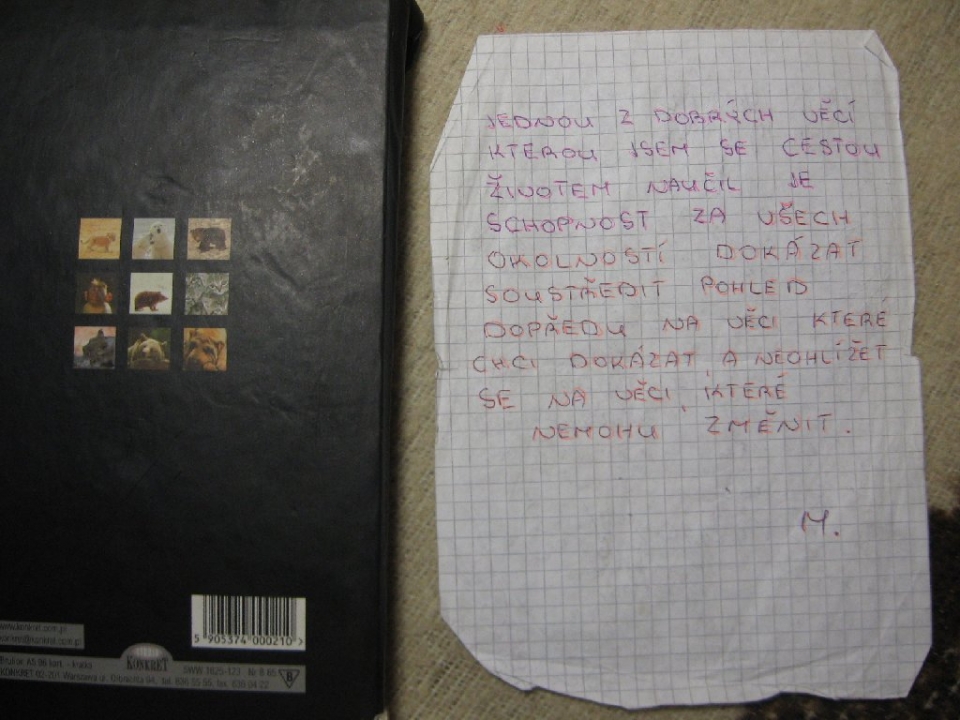 JEDNOU Z DOBRÝCH VĚCÍ
KTEROU JSEM SE CESTOU
ŽIVOTEM NAUČIL JE
SCHOPNOST ZA VŠECH
OKOLNOSTÍ DOKÁZAT
SOUSTŘEDIT POHLED
DOPŘEDU NA VĚCI KTERÉ
CHCI DOKÁZAT, A NEOHLÍŽET
SE NA VĚCI, KTERÉ
NEMOHU ZMĚNIT.
M.
5 905374 000210 >
KONKRET
B